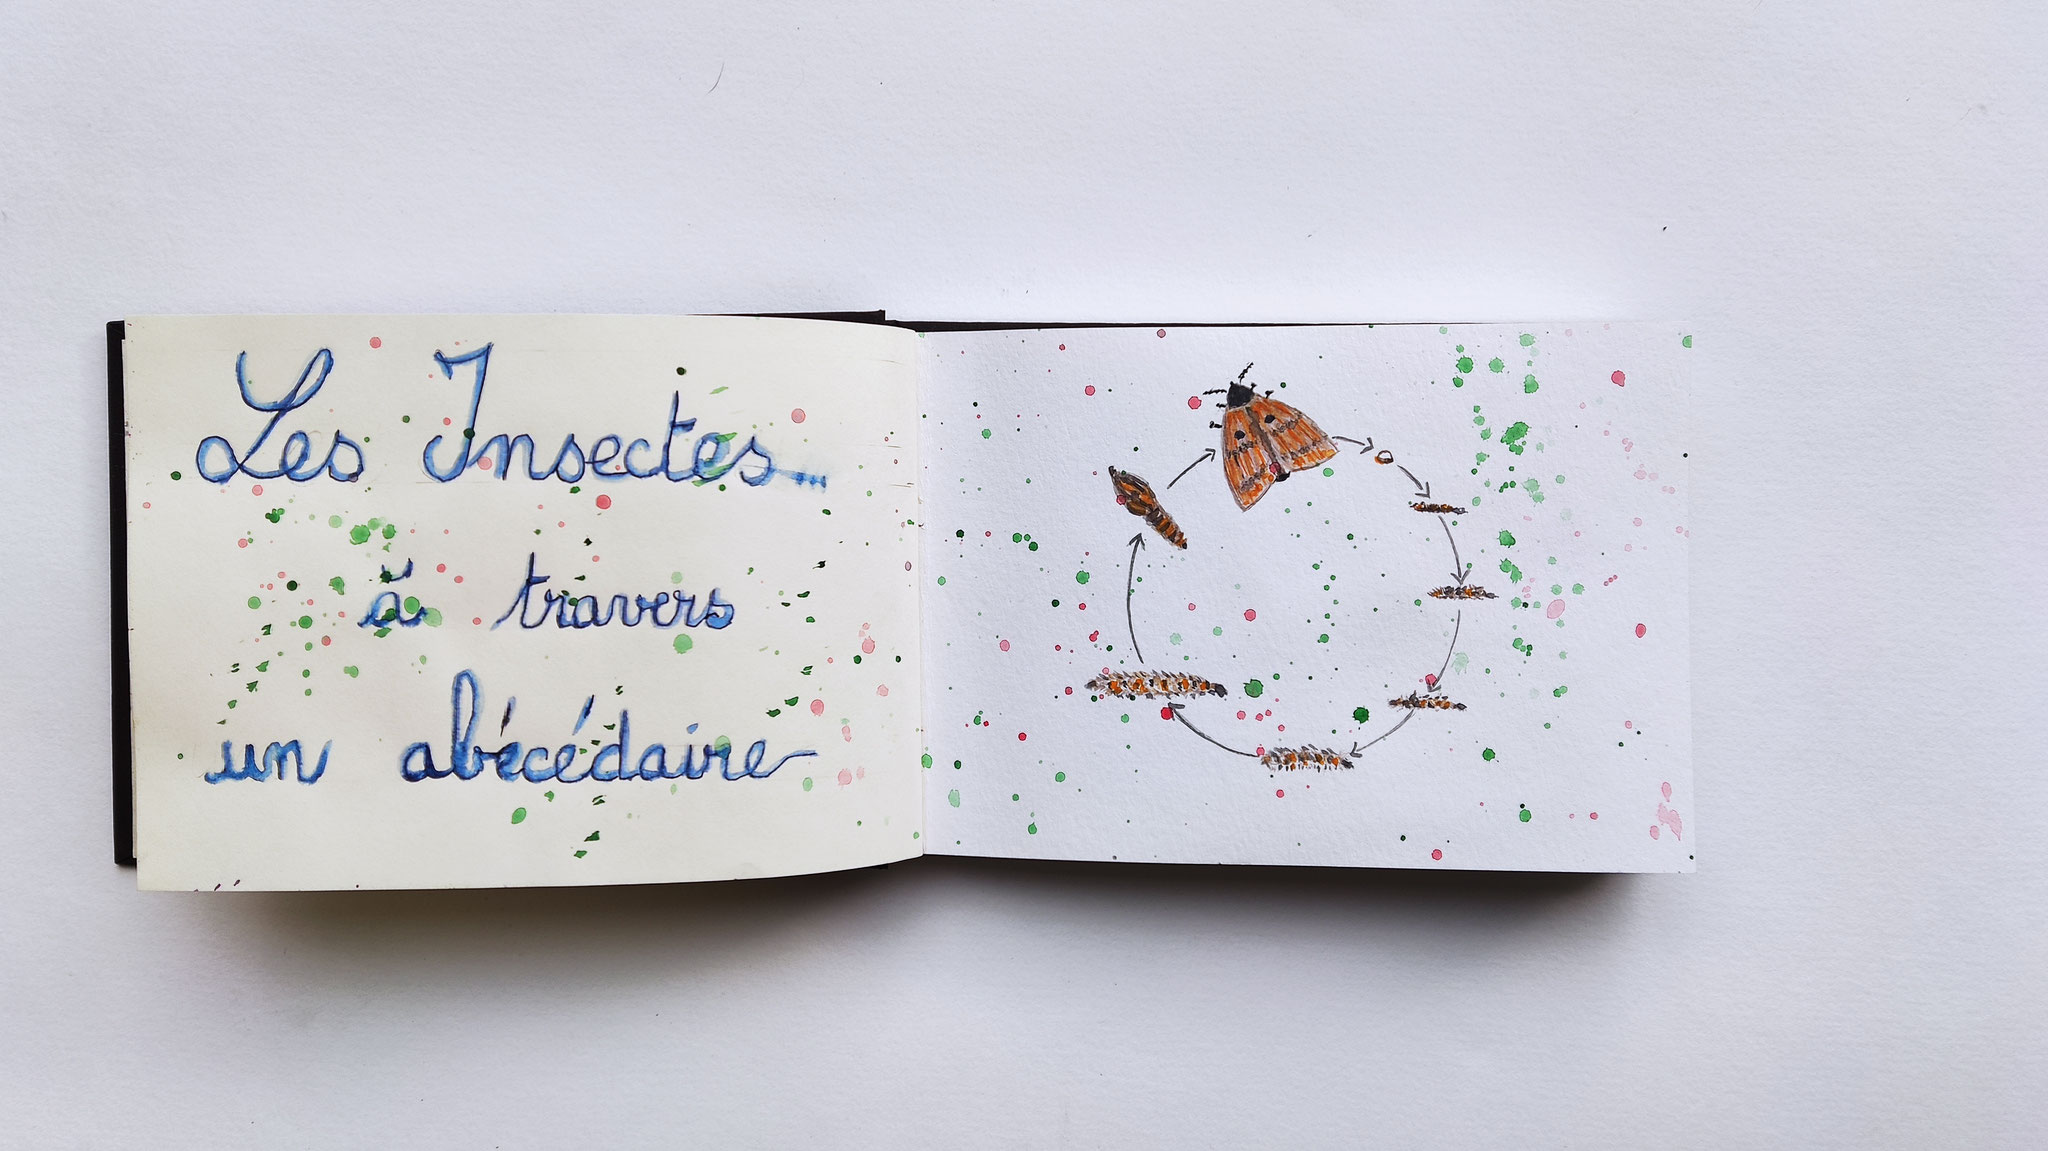 Les Insectes...
à travers
un abécédaire